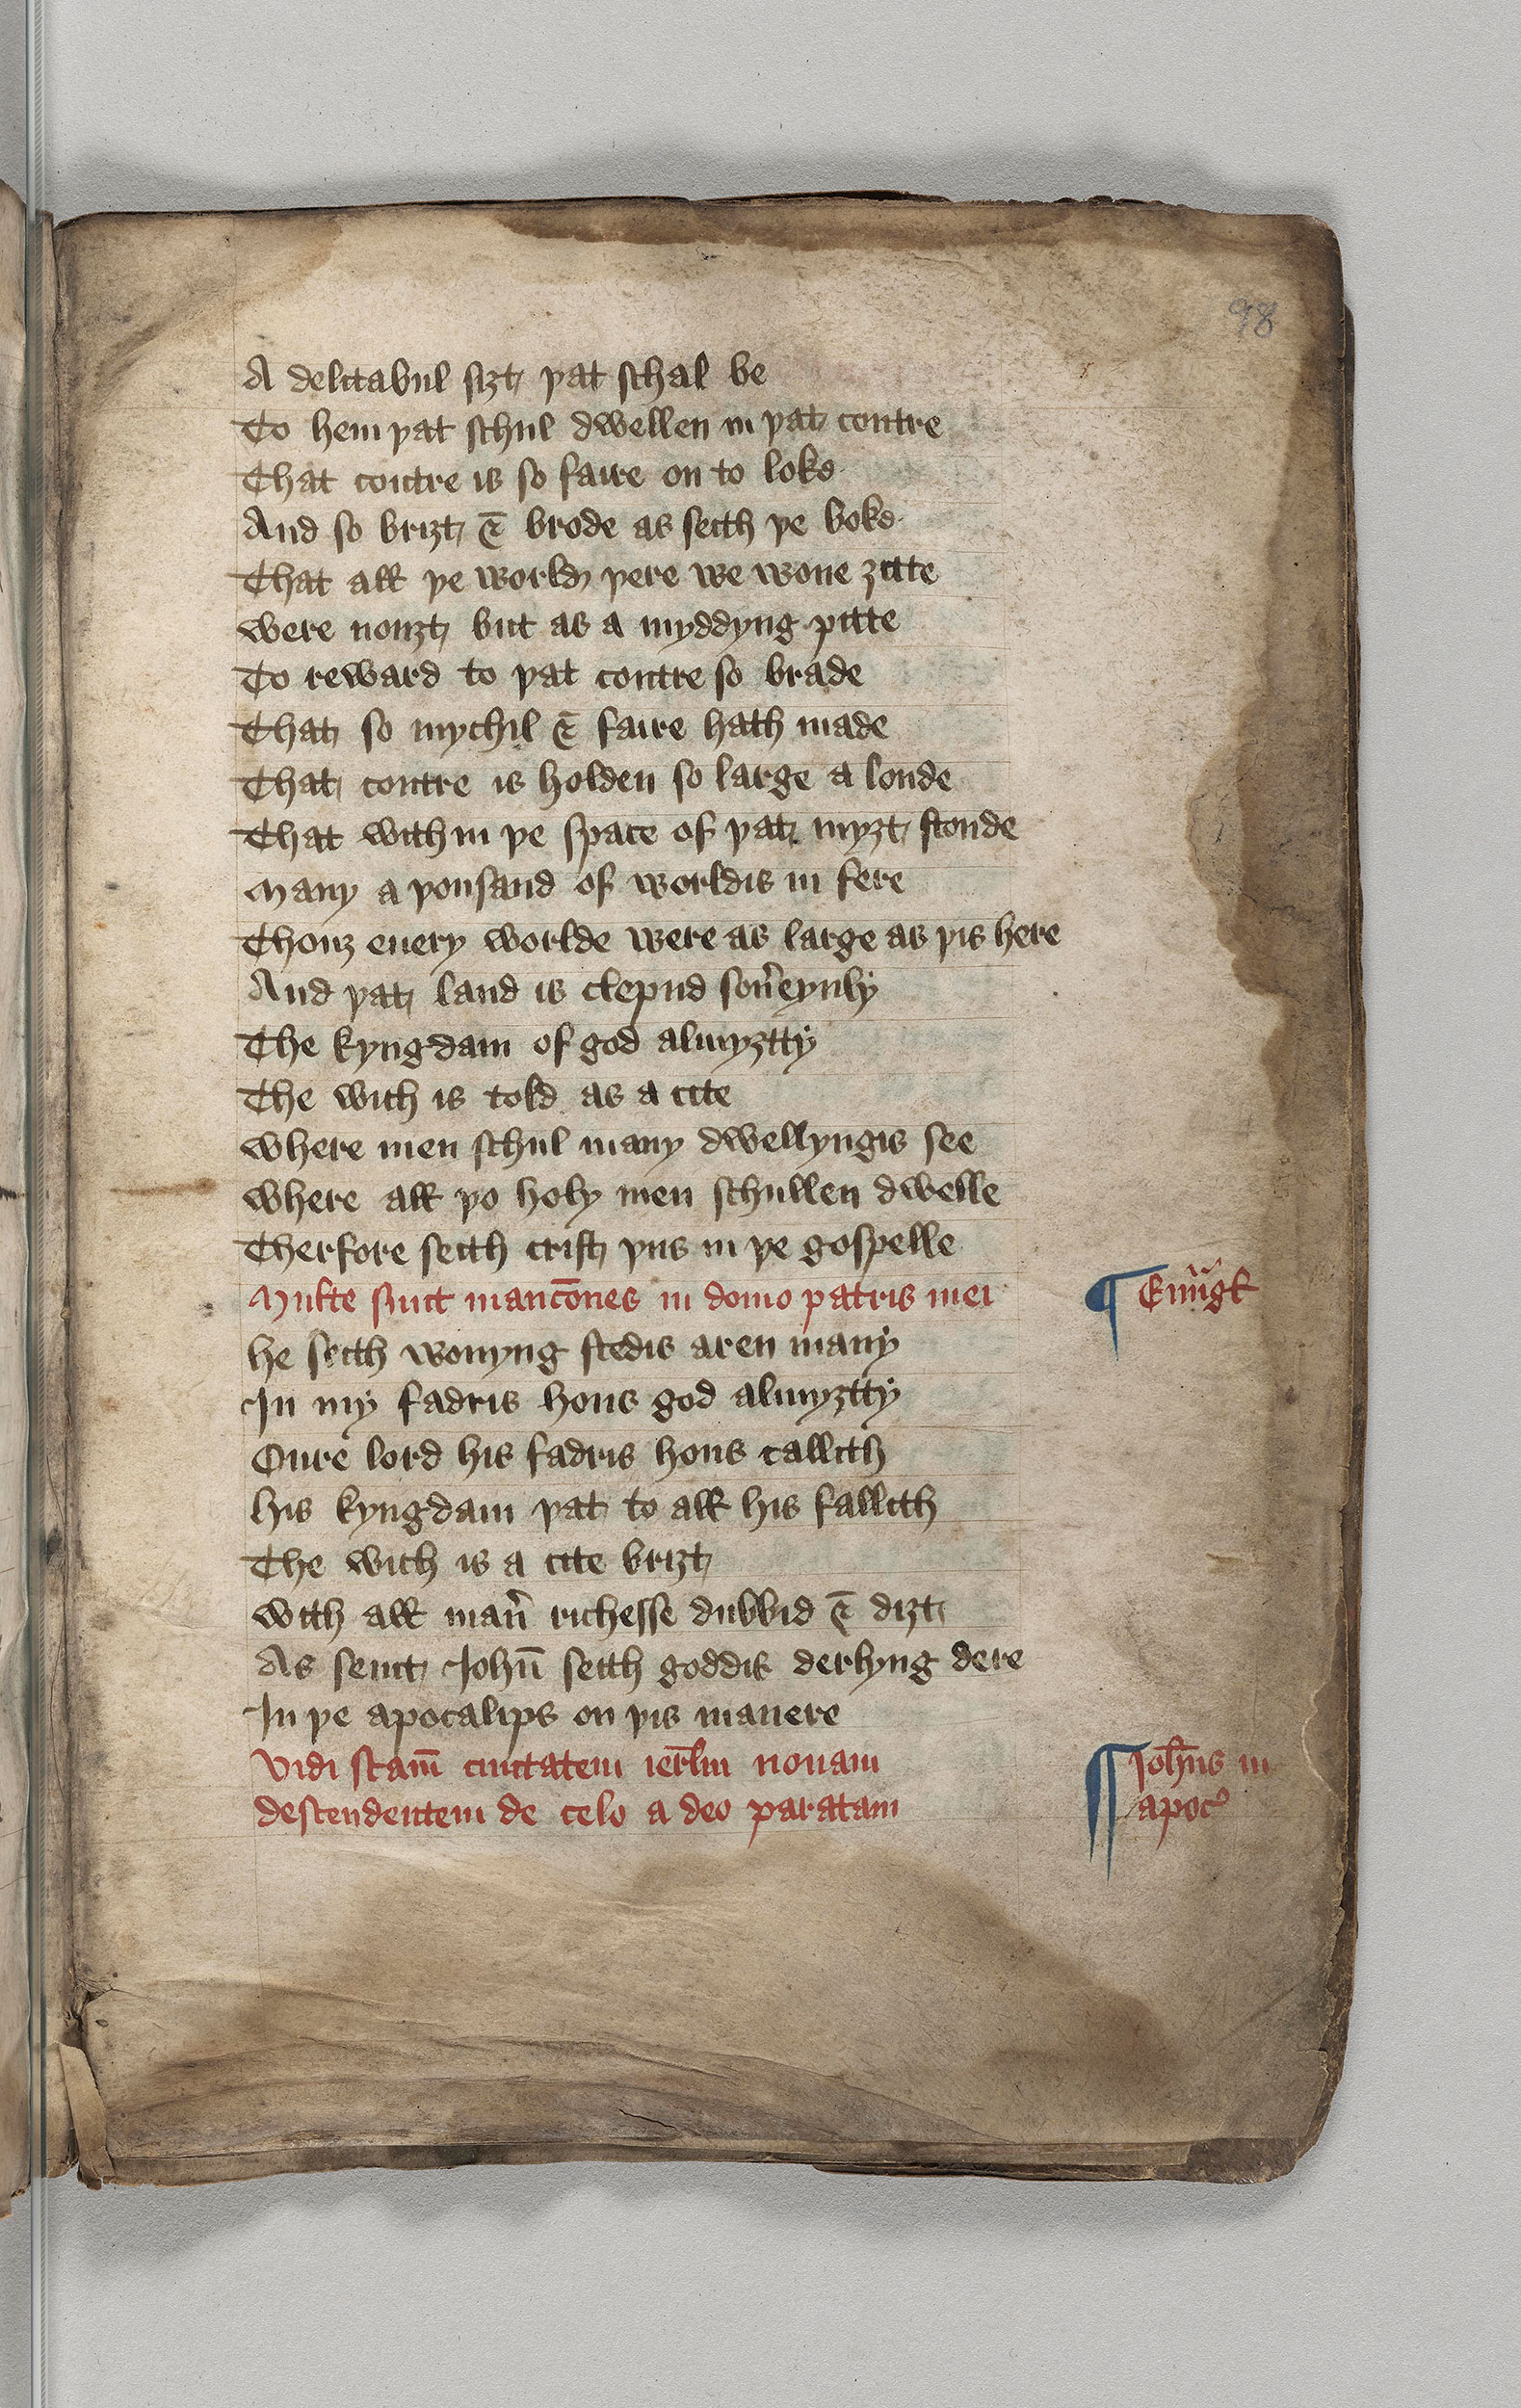 98
A delitabul siȝt þat schal be
To hem þat schul dwellen in þat contre
That contre is so faire on to loke
And so briȝt & brode as seith þe boke
That all þe world þere we wone ȝitte
were nouȝt but as a myddyng pitte
To reward to þat contre so brade
That so mychil & faire hath made
That contre is holden so large a londe
That with in þe space of þat myȝt stonde
Many a þousand of worldis in fere
Thouȝ euery worlde were as large as þis here
And þat land is clepud sou̾eynly
The kyngdam of god almyȝtty
The wich is told as a cite
where men schul many dwellyngis see
where all þo holy men schullen dwelle
Therfore seith crist þus in þe gospelle
Multe sunt manc̄ones in domo patris mei ¶ Euāgl
he seith wonyng stedis aren many
In my fadris hous god almyȝtty
Oure lord his fadris hous callith
his kyngdam þat to all his fallith
The wich is a cite briȝt
with all man̾ richesse dubbid & diȝt
As seint Joh̄n seith goddis derlyng dere
In þe apocalips on þis manere
Vidi sc̄am ciuitatem ierl̄m nouam ¶ Joh̄nis in
descendentem de celo a deo paratam apoc̾